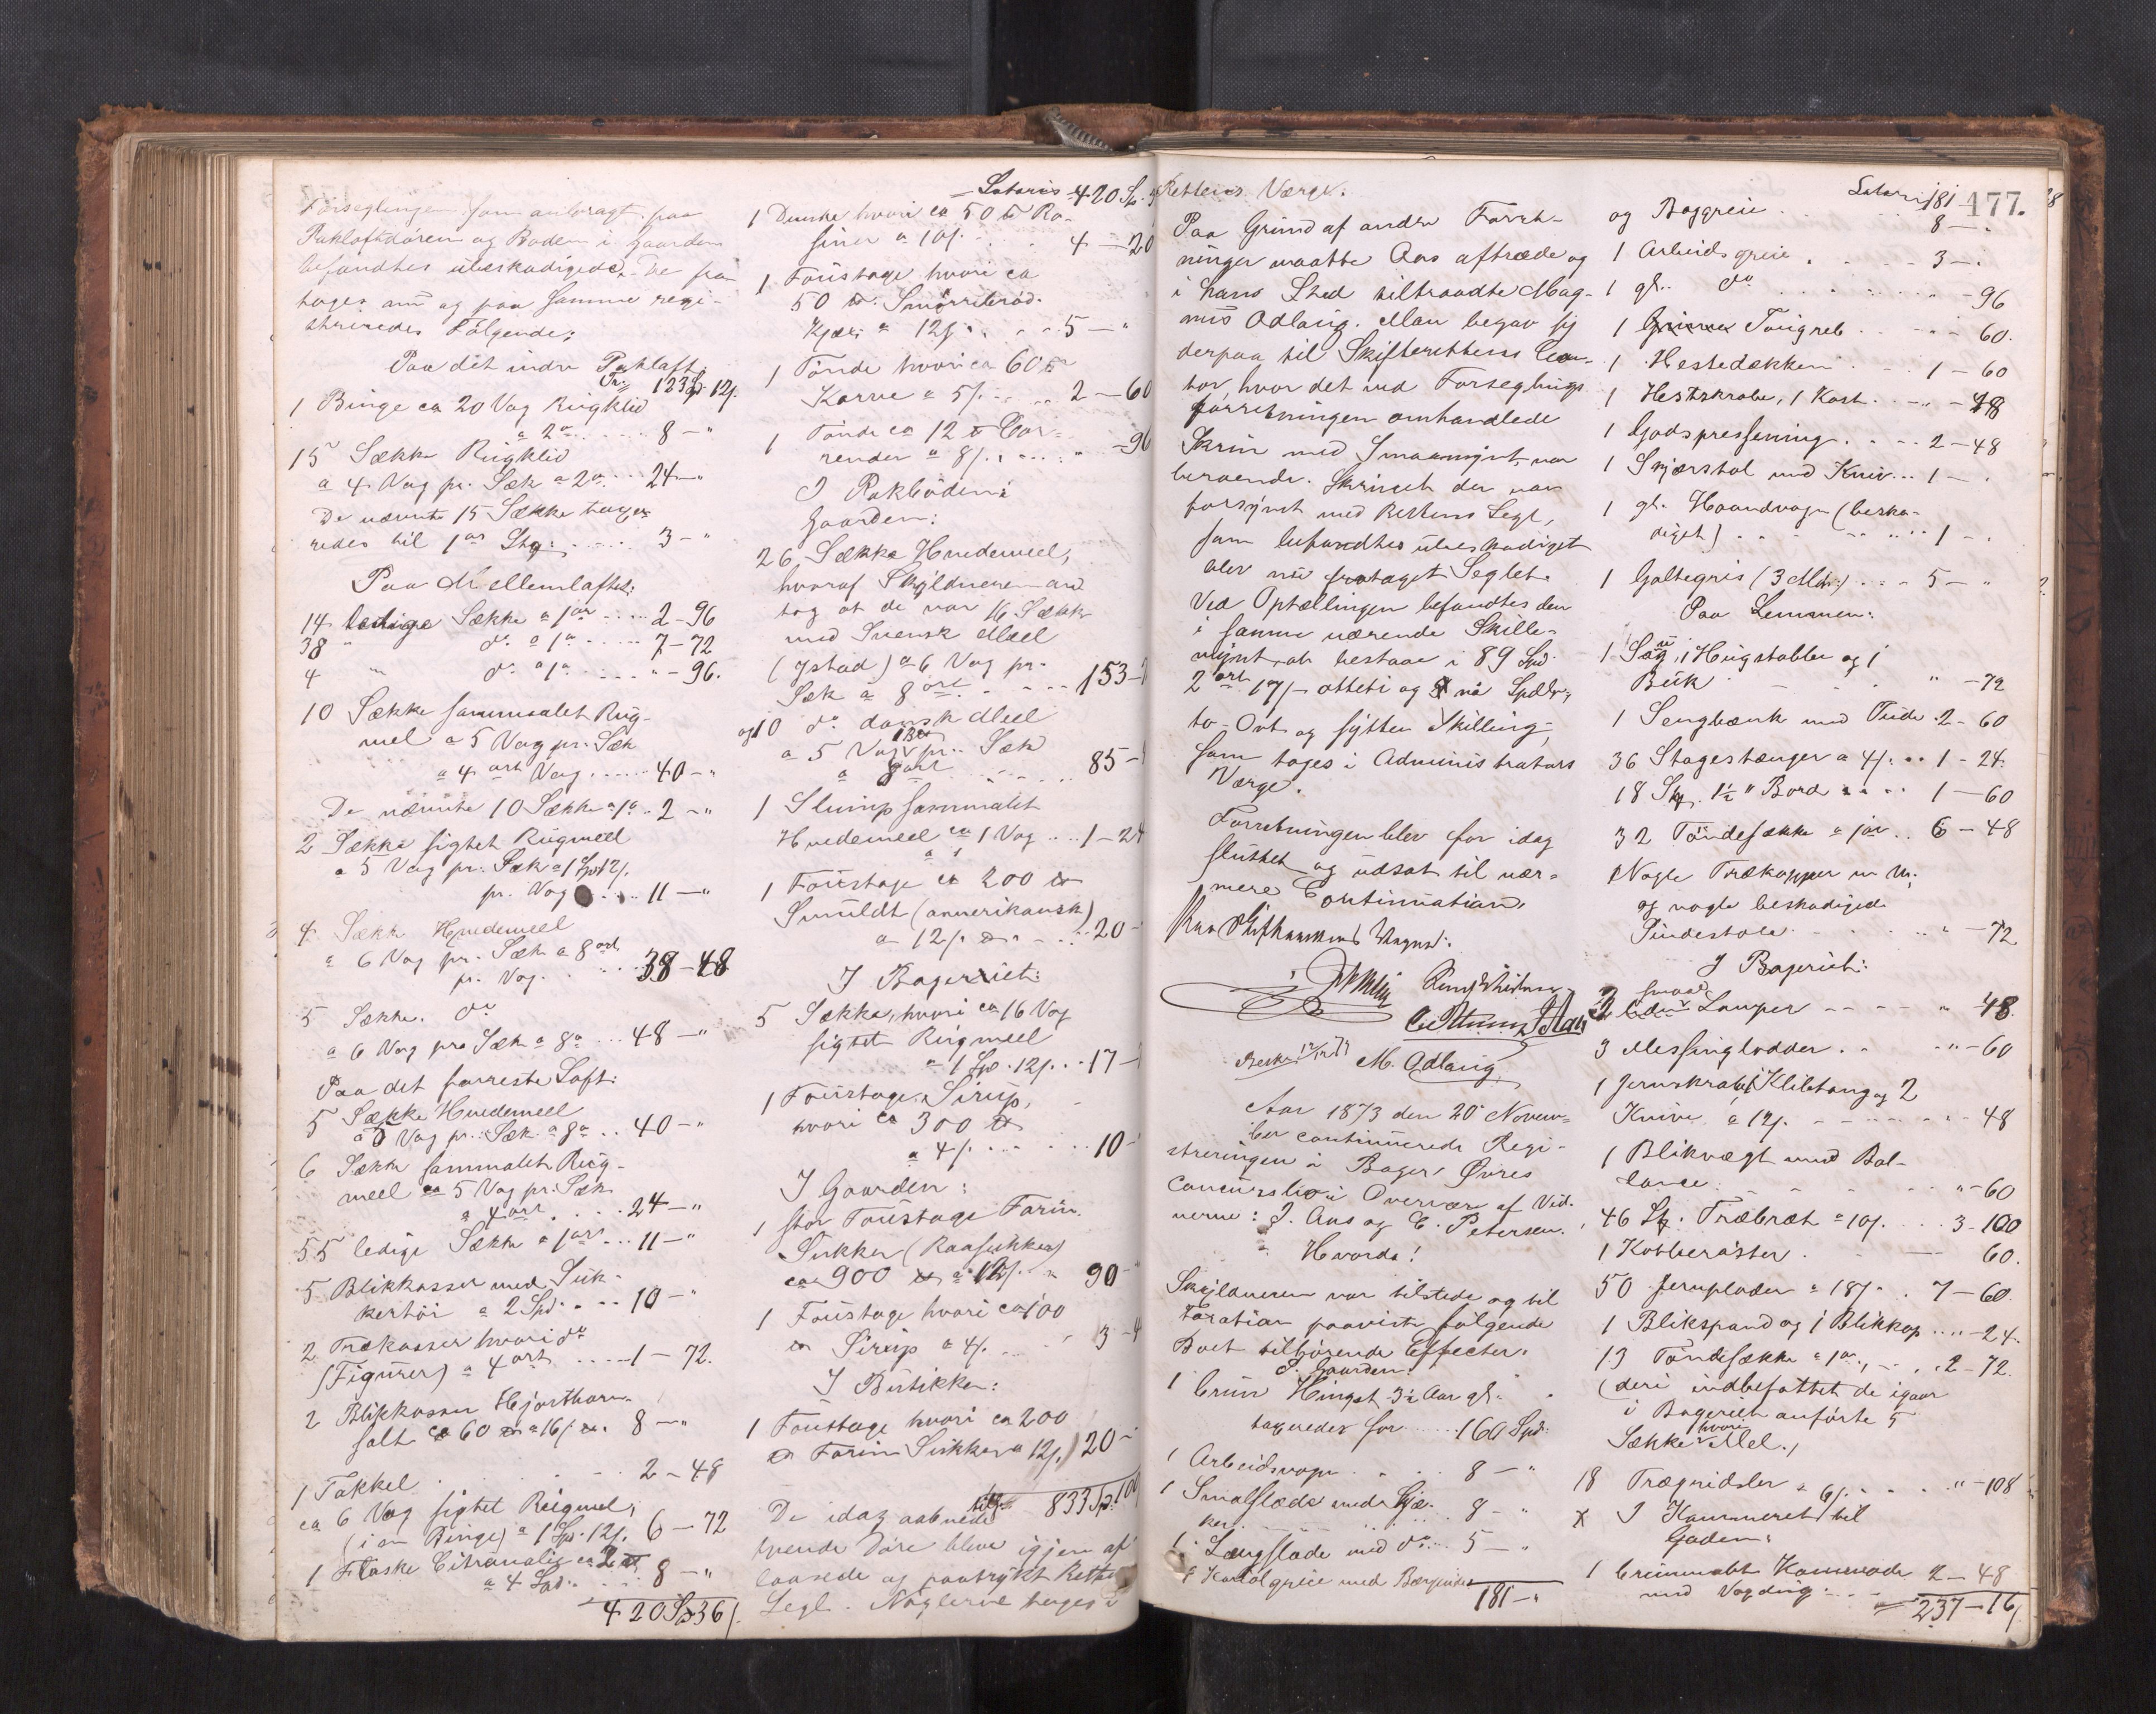 Forseglingen som anbragt paa
Pakloftdøren og Boden i Gaarden
befandtes ubeskadigede. De fra
toges nu og paa samme regi-
streredes Følgende:
Paa det indre Pakloft.
Tr. 123 Sp 12 s.
1 Binge ca 20 Vog Rugklid
a 2 o. .... 8 - "
15 Sække Rugklid
a 4 Vog pr. Sæk a 2 o ... 24 - "
De nævnte 15 Sække taxe-
redes til 1 ort Stk. .... 3 - "
Paa Mellemloftet:
14 ledige Sække a 1 ort .... 2 - 96
38 " do. a 1 o .... 7 - 72
4 " do. a 1 o .... " - 96.
10 Sække sammalet Rug-
mel a 5 Vog pr. Sæk
a 4 ort Vog ...... 40 - "
De nævnte 10 Sække a 1 o .. 2 - "
2 Sække sigtet Rugmeel
a 5 Vog pr. Sæk a 1 Spd 12 s.
pr. Vog .... 11 - "
4 Sække Hvedemeel
a 6 Vog pr. Sæk a 8 ort
pr. Vog. .... 38 - 48
5 Sække. do
a 6 Vog pr. Sæk a 8 o ... 48 - "
Paa det forreste Loft:
5 Sække Hvedemeel
a 5 Vog pr. Sæk. a 8 o .. 40 - "
6 Sække sammalet Rug-
meel ca 5 Vog pr. Sæk
a 4 ort .... 24 - "
55 ledige Sække a 1 ort ... 11 - "
5 Blikkasser med Suk-
kertøi a 2 Spd. ... 10 - "
2 Trækasser hvori do
(Figurer) a 4 ort ..... 1 - 72.
2 Blikkasser Hjorthorn-
salt ca 60 lb a 16 s. 8 - "
1 Takkel ...... 2 - 48
ca 6 Vog sigtet Rugmel,
(i en Binge) a 1 Sp. 12 s. 6 - 72
1 Flaske Citronolie ca 2 lb
a 4 Spd. .... 8 - "
420 Sp 36 s.
Lateris 420 Sp.
1 Dunke hvori ca 50 lb Ro-
siner a 10 s. .... 4 - 20
1 Foustage hvori ca
50 lb. Smørrebrød.
Kjæx a 12 s. .... 5 - "
1 Tønde hvori ca 60 lb
Karve a 5 s. .... 2 - 60
1 Tønde ca 12 lb Cor-
render a 8 s. .... " - 96
I Pakboden i
Gaarden:
26 Sække Hvedemeel,
hvoraf Skyldneren an
tog at de var 16 Sække
med Svensk Meel
(Ystad) a 6 Vog pr.
Sæk a 8 ort .... 153 -
og 10 do. dansk Meel
a 5 Vog pr. Sæk
a 8 ort .... 85 -
1 Slump sammalet
Hvedemeel ca 1 Vog ... 1 - 24
1 Foustage ca 200 lb
Smuldt (amerikansk)
a 12 s. lb .... 20 -
I Bageriet:
5 Sække, hvori ca 16 Vog
sigtet Rugmeel
a 1 Spd. 12 s. .. 17 -
1 Foustage Sirup,
hvori ca 300 lb
a 4 s. .... 10 -
I Gaarden:
1 stor Foustage Farin
Sukker (Raasukker)
ca 900 lb a 12 s. " 90 - "
1 Foustage hvori ca 100
lb Sirup a 4 s. ... 3 - 4
I Butikken:
1 Foustage hvori ca 200
lb Farin Sukker a 12 s. 20 -
833 Sp. 100
De idag aabnede
tvende Døre bleve igjen af
laasede og paatrykt Rettens
Segl. Nøglerne toges i
Rettens Værge.
Paa Grund af andre Forret-
ninger maatte Aas aftræde og
i hans Sted tiltraadte Mag-
nus Adlang. Man begav sig
derpaa til Skifterettens Con-
tor, hvor det ved Forseglings
forretningen omhandlede
Skrin med Smaamynt, var
beroende. Skrinet der var
forsynet med Rettens Segl,
som befandtes ubeskadiget
blev nu frataget Seglet.
Ved Optællingen befandtes den
i samme værende Skille-
mynt, at bestaae i 89 Spd
2 ort 17 s - otteti og ni Spdlr,
to - Ort og sytten Skilling,
som toges i Administrators
Værge.
Forretningen blev for idag
sluttet og udsat til nær-
mere Continuation.
M. Adlang
Aar 1873 den 20 Novem-
ber continuerede Regi-
streringen i Bager Øvres
Concursbo i Overvær af Vid-
nerne: J. Aas og C. Petersen.
Hvorda!
Skyldneren var tilstede og til
Taxation paaviste følgende
Boet tilhørende Effecter.
I Gaarden:
1 brun Hingst 3½ Aar gl.
taxeredes for ..... 160 Spd.
1 Arbeidsvogn .... 8 - "
1 Smalslæde med Skjæ-
ker. .... 8 - "
1 Langslæde med do. ... 5 - "
181 - "
Lateris 181 -
177.
og Baggreie .... 8 - "
1 Arbeidsgreie .... 3 - "
1 gl. do .... " - 96
1 Tougreb .... " - 60.
1 Hestedækken .... 1 - 60
1 Hestskrabe, 1 Kost .... " - 48
1 Godspressenning .... 2 - 48
1 Skjærstol med Kniv ... 1 - "
1 gl. Haandvogn (beska-
diget) .... 1 - "
1 Galtegris (3 Mdr) ... 5 - "
Paa Lemmen:
1 Sag, 1 Hugstabbe og 1
Buk .... " - 72
1 Sengbænk med Pude. 2 - 60
36 Stagestænger a 4 s. .. 1 - 24.
18 Stk. 1½ " Bord .... 1 - 60
32 Tøndesække a 1 ort .. 6 - 48
Nogle Trækopper m. m.
og nogle beskadigede
Pindestole .... " - 72
I Bageriet:
2 smaa Lamper .... " 48
3 Messinglodder .. " - 60
1 Jernskrabe, 1 Klibtang og 2
Knive a 12 s. .... " 48
1 Blikvægt med Bal-
lance .... " - 60
46 Stk. Træbræt a 10 s. ... 3 - 100
1 Kobberøster .... 60.
50 Jernplader a 18 s. . 7 - 60
1 Blikspand og 1 Blikkop .... " - 24.
13 Tøndesække a 1 ort .... 2 - 72.
(deri indbefattet de igaar
i Bageriet anførte 5
Sække hvori Mel.)
18 Trægnidsler a 6 s. .... " - 108
I Kammeret til
Gaden:
1 brunmalt Kommode
med Vogdug .... 2 - 48
237 - 16 s.